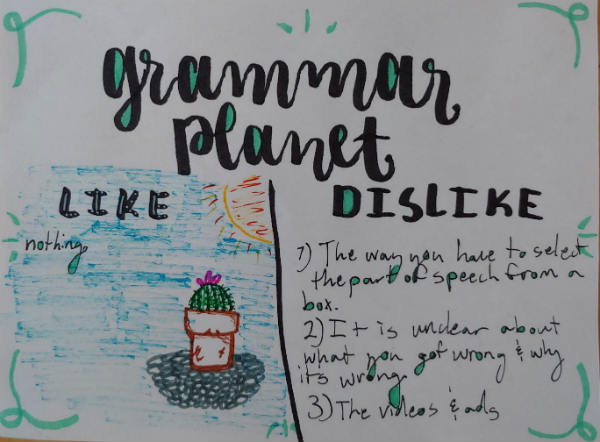 grammar
planet
LIKE
nothing.
DISLIKE
1) The way you have to select
the part of speech from a
box.
2) It is unclear about
what you got wrong & why
it's wrong.
3) The videos & ads